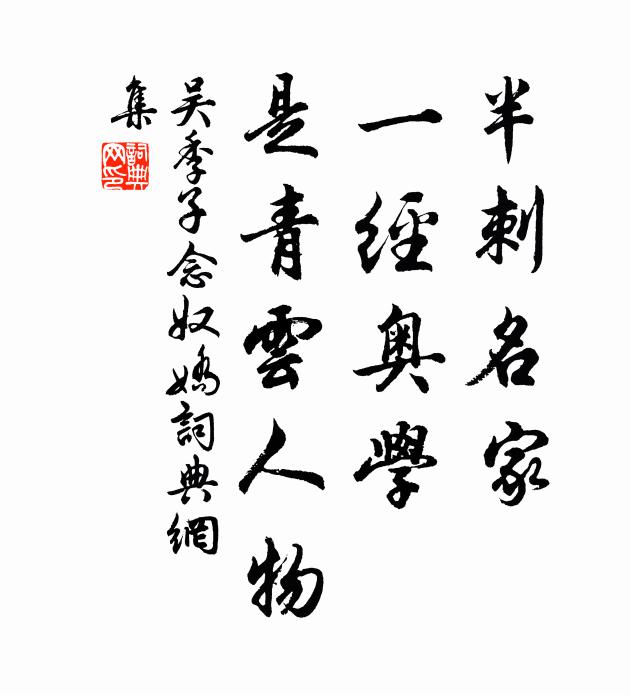 半刺名家
一經奥學
是青雲人物
吴季子念奴嬌詞典網
集
詞典
网印